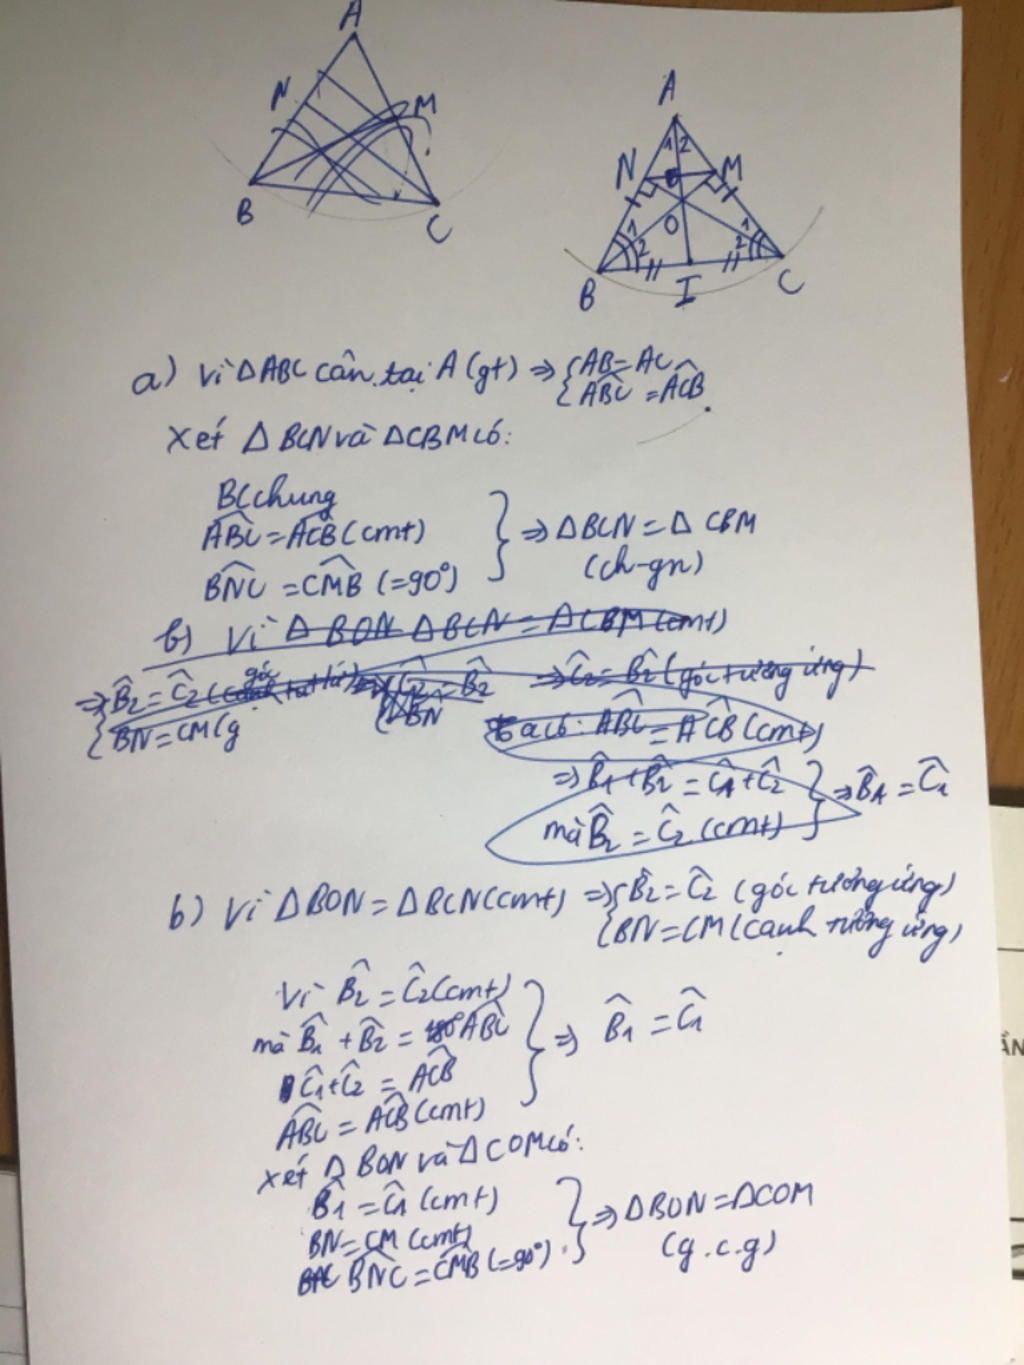 A
N
M
B
C
A
1 2
N
M
O
1
2
1
2
B
I
C
a) Vì ΔABC cân tại A (gt) => { AB = AC
{ ABC^ = ACB^
Xét Δ BCN và ΔCBM có:
BC chung
ABC^ = ACB^ (cmt) } => ΔBCN = Δ CBM
BNC^ = CMB^ (=90°) (ch-gn)
b) Vì Δ BON ΔBCN = ΔCBM (cmt)
=> { B2^ = C2^ góc => C2^ = B2^ (góc tương ứng)
{ BN = CM (g
Ta có: ABC^ = ACB^ (cmt)
=> B1^ + B2^ = C1^ + C2^ } => B1^ = C1^
mà B2^ = C2^ (cmt)
b) Vì ΔBON = ΔBCN (cmt) => { B2^ = C2^ (góc tương ứng)
{ BN = CM (cạnh tương ứng)
Vì B2^ = C2^ (cmt)
mà B1^ + B2^ = ABC^ } => B1^ = C1^
C1^ + C2^ = ACB^
ABC^ = ACB^ (cmt)
Xét Δ BON và ΔCOM có:
B1^ = C1^ (cmt)
BN = CM (cmt) } => ΔBON = ΔCOM
BNC^ = CMB^ (=90°) (g.c.g)
ẦN